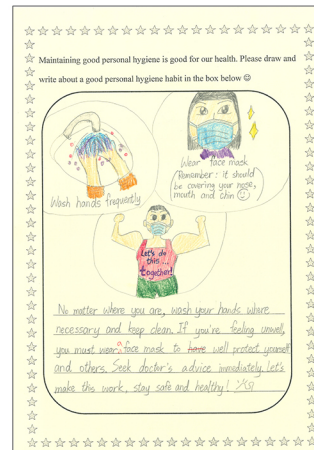 Maintaining good personal hygiene is good for our health. Please draw and
write about a good personal hygiene habit in the box below ☺
Wash hands frequently
Wear face mask
(Remember: it should
be covering your nose,
mouth and chin ☺)
Let's do
this...
together!
No matter where you are, wash your hands where
necessary and keep clean. If you're feeling unwell,
you must wear a face mask to have well protect yourself
and others. Seek doctor's advice immediately. Let's
make this work, stay safe and healthy!